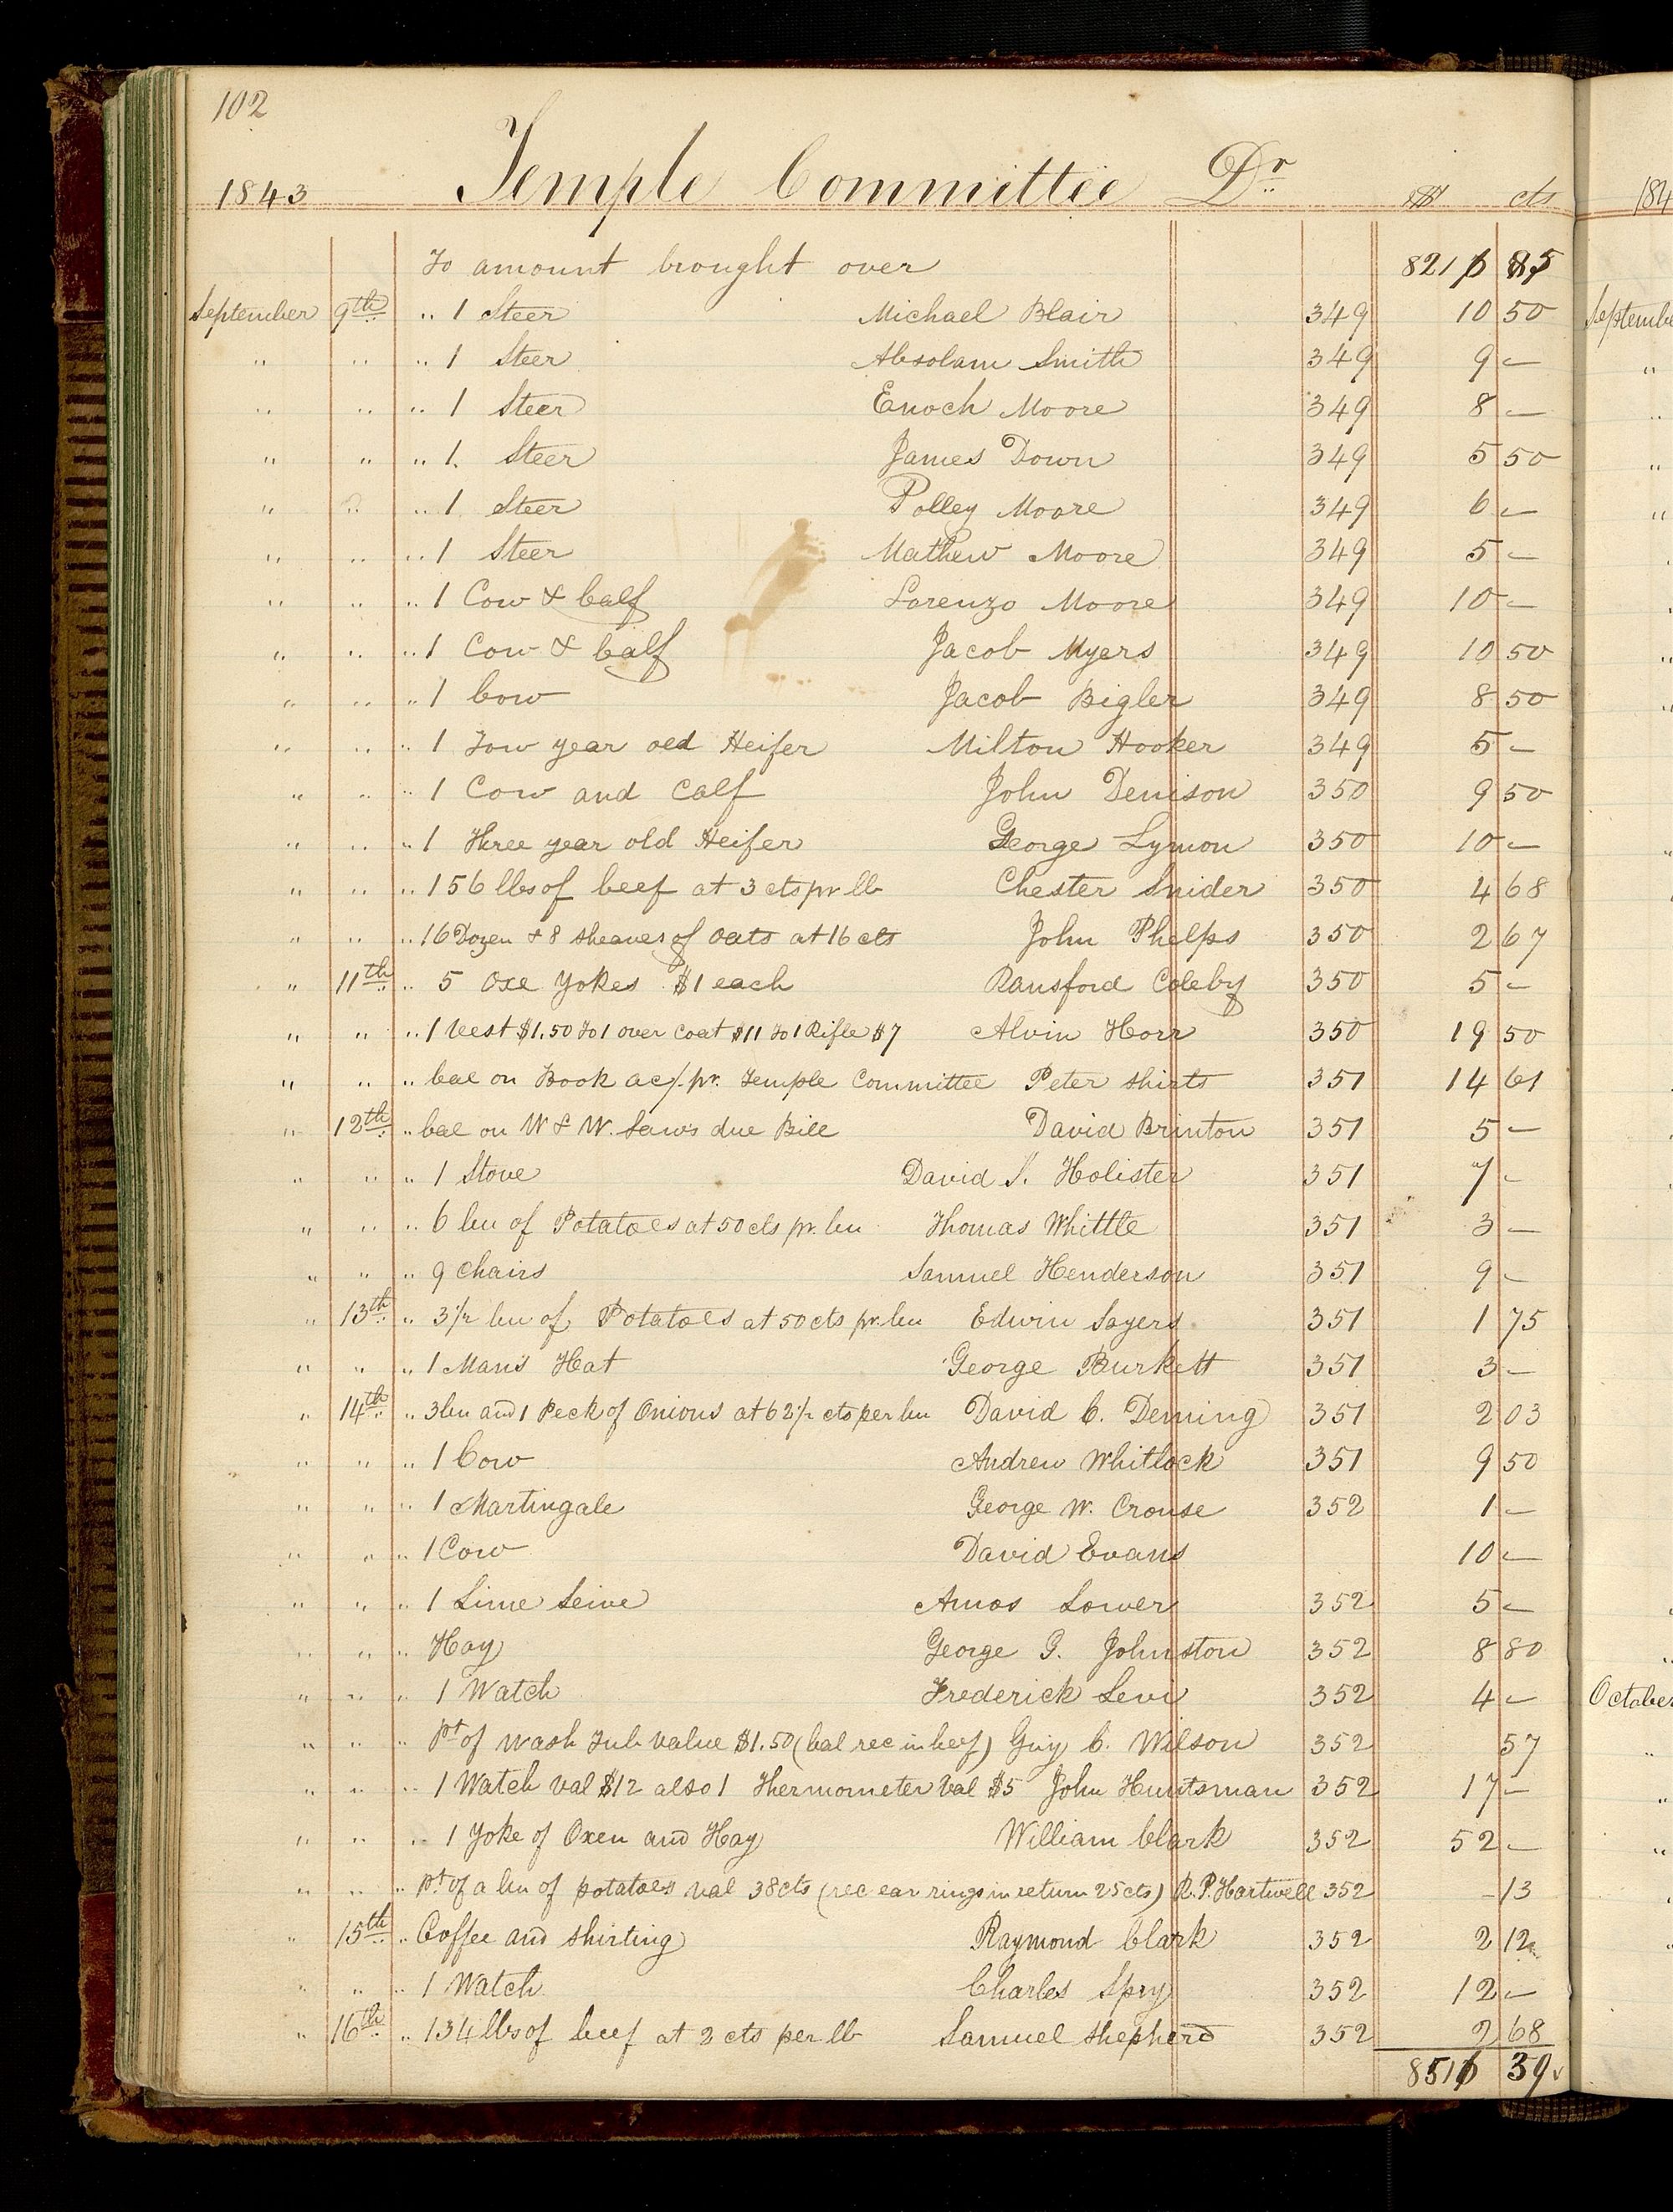 102
1843 Temple Committee Dr. $ cts
To amount brought over 821
September 9th " 1 Steer Michael Blair 349 10 50
" " " 1 Steer Absolam Smith 349 9 —
" " " 1 Steer Enoch Moore 349 8 —
" " " 1. Steer James Down 349 5 50
" " " 1 Steer Polley Moore 349 6 —
" " " 1 Steer Mathew Moore 349 5 —
" " " 1 Cow & Calf Lorenzo Moore 349 10 —
" " " 1 Cow & Calf Jacob Myers 349 10 50
" " " 1 Cow Jacob Bigler 349 8 50
" " " 1 Tow year old Heifer Milton Hooker 349 5 —
" " " 1 Cow and Calf John Denison 350 9 50
" " " 1 Three year old Heifer George Lymon 350 10 —
" " " 156 lbs of beef at 3 cts pr lb Chester Snider 350 4 68
" " " 16 Dozen & 8 sheaves of Oats at 16 cts John Phelps 350 2 67
" 11th " 5 Oxe Yokes $1 each Ransford Coleby 350 5 —
" " " 1 Vest $1.50 To 1 over Coat $11 To 1 Rifle $7 Alvin Horr 350 19 50
" " " bal on Book ac/. pr. Temple Committee Peter Shirts 351 14 61
" 12th " bal on W & W. Laws due Bill David Brinton 351 5 —
" " " 1 Stove David S. Holister 351 7 —
" " " 6 bu of Potatoes at 50 cts pr. bu Thomas Whittle 351 3 —
" " " 9 Chairs Samuel Henderson 351 9 —
" 13th " 3 1/2 bu of Potatoes at 50 cts pr. bu Edwin Sayers 351 1 75
" " " 1 Mans Hat George Burkett 351 3 —
" 14th " 3 bu and 1 Peck of Onions at 62 1/2 cts per bu David C. Deming 351 2 03
" " " 1 Cow Andrew Whitlock 351 9 50
" " " 1 Martingale George W. Crouse 352 1 —
" " " 1 Cow David Evans 10 —
" " " 1 Lime Seive Amos Lower 352 5 —
" " " Hay George G. Johnston 352 8 80
" " " 1 Watch Frederick Levi 352 4 —
" " " Pt of Wash Tub Value $1.50 (bal rec in beef) Guy C. Wilson 352 57
" " " 1 Watch val $12 also 1 Thermometer Val $5 John Huntsman 352 17 —
" " " 1 Yoke of Oxen and Hay William Clark 352 52 —
" " " pt of a bu of potatoes val 38 cts (rec ear rings in return 25 cts) R. P. Hartwell 352 – 13
" 15th " Coffee and Shirting Raymond Clark 352 2 12
" " " 1 Watch Charles Spry 352 12 —
" 16th " 134 lbs of beef at 2 cts per lb Samuel Shepherd 352 2 68
851 39
184
Septembe
October